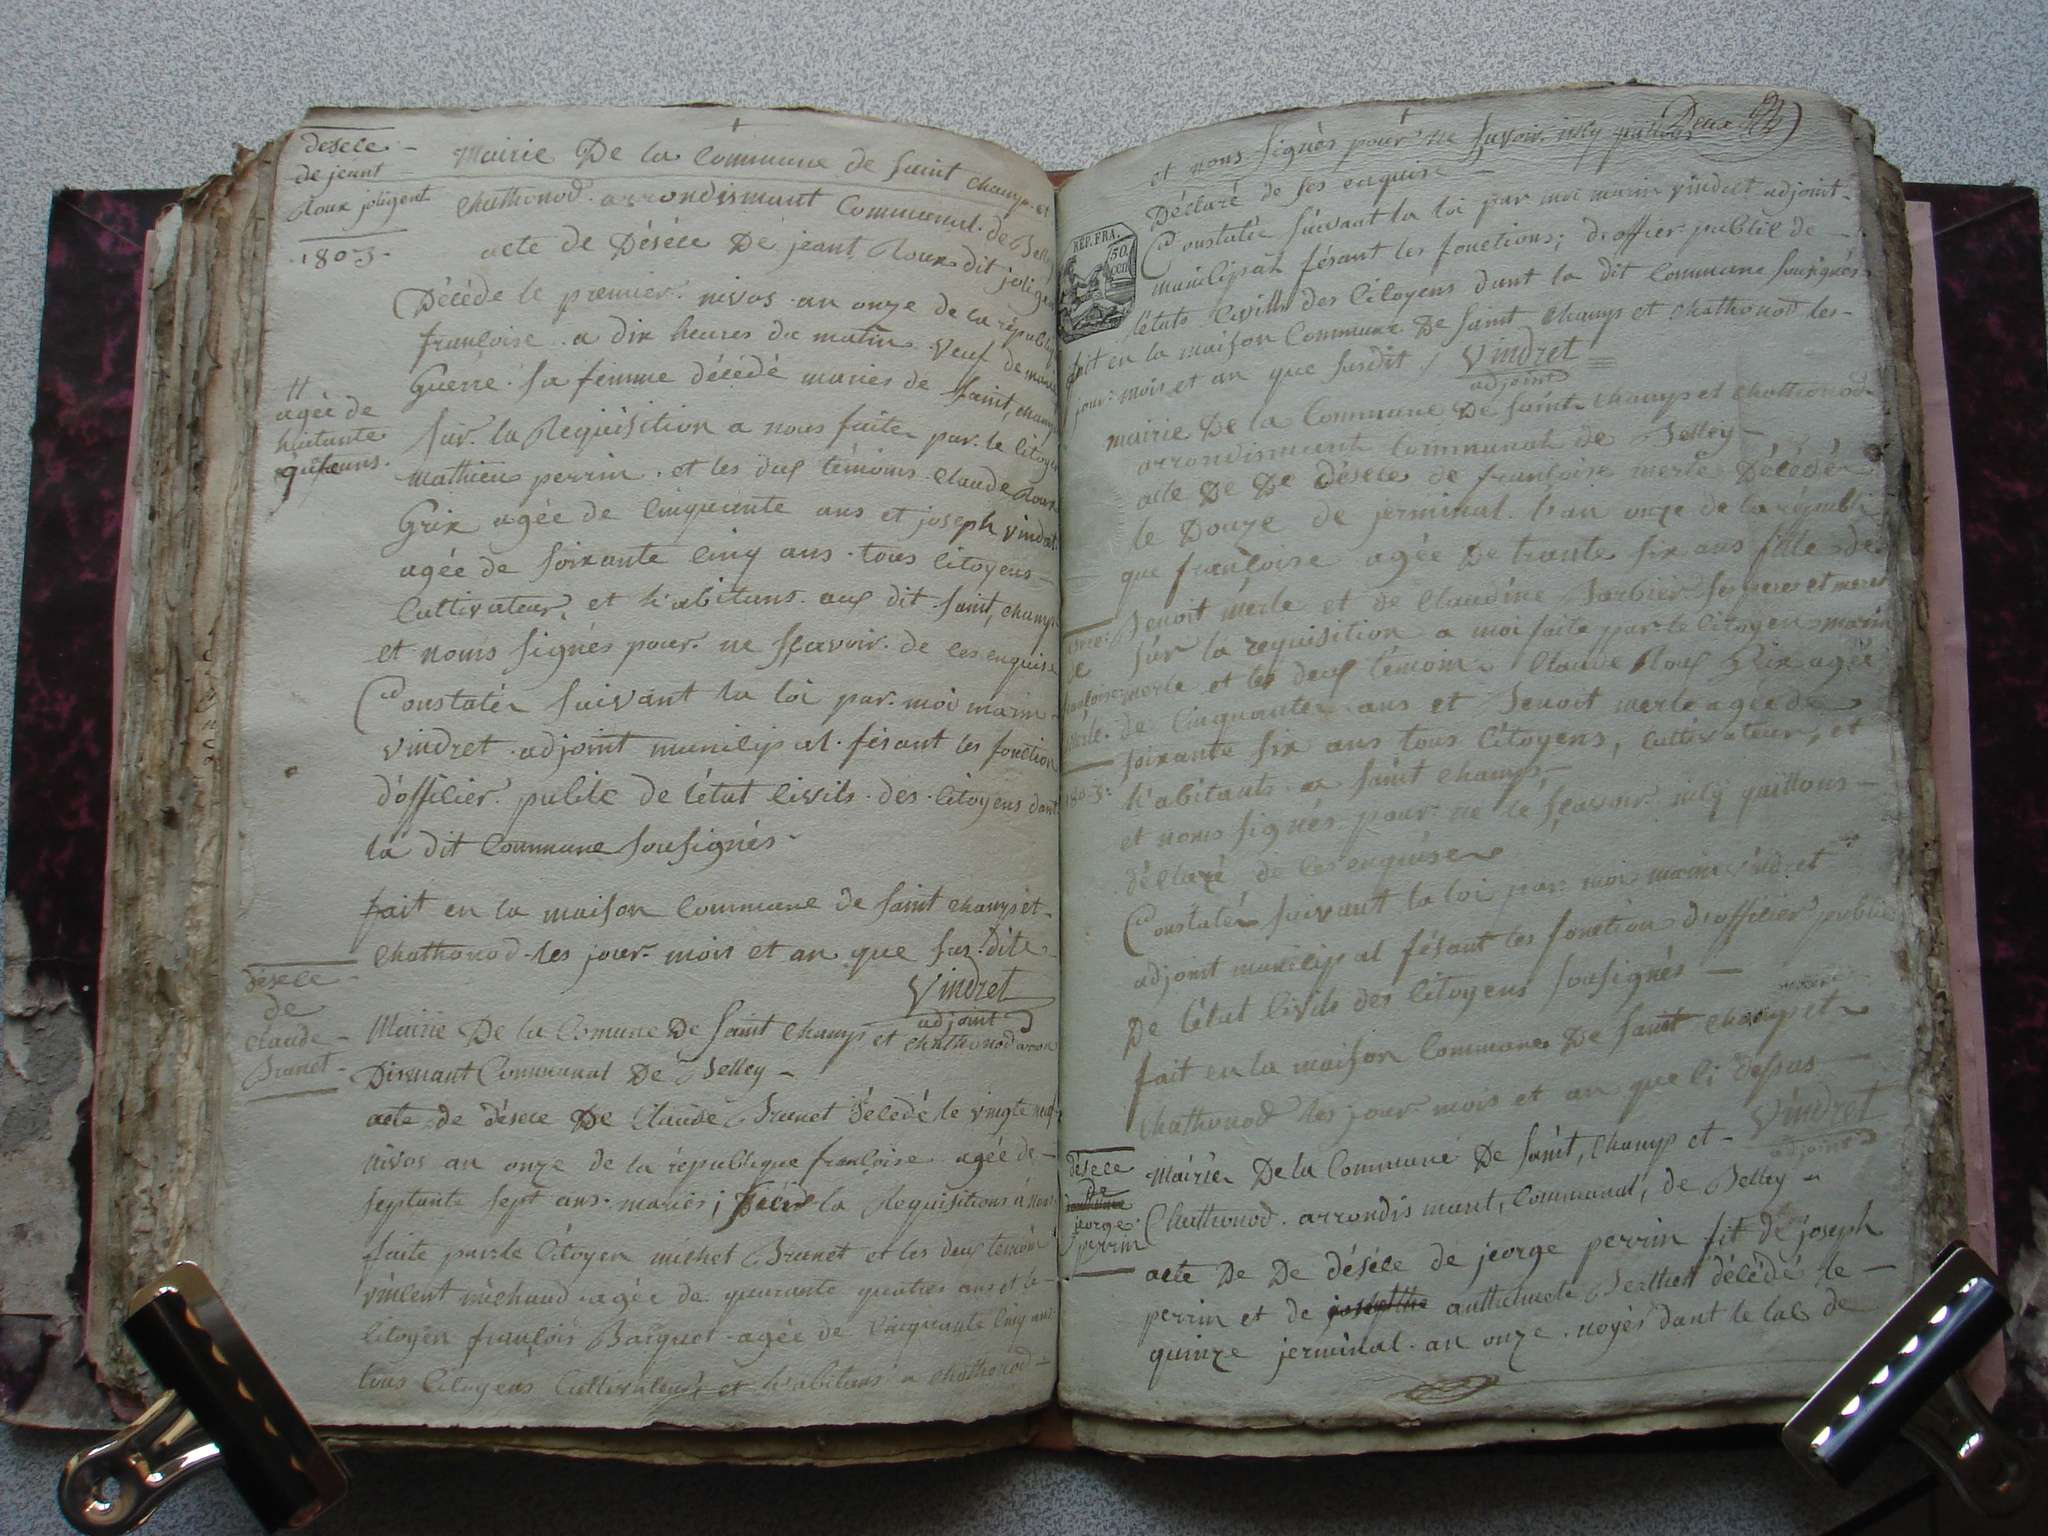 desece
de jeant
Roux joligent
1803
Mairie De la Commune de saint champ et
chathonod arrondismant Communal de Belley
acte de Désece De jeant Roux dit joligent
Décéde le premier nivos an onze de la républiq
françoise a dix heures du matin veuf de marie
Guerre sa femme décédé maries de saint champ
agée de
huitante
sur la Requisition a nous faite par le citoyen
mathieu perrin et les deus témoins claude Roux
Grix agée de cinquente ans et joseph vindret
agée de soixante cinq ans tous citoyens
cultivateur et h'abitans aus dit saint champ
et nous signés pour ne sçavoir de ces enquise
Constatér suivant la loi par moi marin
vindret adjoint municipal fésant les fonction
d'officier public de l'état civils des citoyens dant
la dit Commune sousignés
fait en la maison Commune de saint champ et
chathonod les jour mois et an que sus dite
Vindret
adjoint
désece
de
claude
Brunet
Mairie De la Comune De saint champ et chathonod arron
Dismant Communal De Belley
acte de désece De Claude Brunet décedé le vingte neuf
nivos an onze de la république françoise agée de
septante sept ans maries; la Requisitions à nous
faite par le citoyen michel Brunet et les deus témoin
vincent michaud agée de quarante quatres ans et le
citoyen françois Barquet agée de cinquante cinq ans
tous citoyens cultivateur et h'abitans a chathonod
Deux
et nous signés pour ne savoir
Déclaré de ses enquise
Constatér suivant la loi par moi marin vindret adjoint
municipal fésant les fonctions d'officier public de
l'états civills des citoyens dant la dit Commune sousignés
fait en la maison Commune De saint champ et chathonod les
jour mois et an que susdit Vindret
adjoint
REP. FRA.
50
cen
mairie De la Commune De saint champ et chathonod
arrondismant Communal de Belley
acte De De désece de françoise merle Décédée
le Douze de jerminal l'an onze de la républi
que françoise agée De trante six ans fille de
Benoit merle et de claudine Barbier ses pere et mere
sur la requisition a moi faite par le citoyen marin
merle et les deus témoin claude Rous Grix agée
de cinquante ans et Benoit merle agée de
soixante six ans tous citoyens, cultivateur, et
h'abitants a saint champ
et nous signés pour ne le sçavoir
déclaré de ces enquise
Constatér suivant la loi par moi marin vindret
adjoint municipal fésant les fonction d'officier public
De l'état civils des citoyens sousignés
fait en la maison Commune De saint champ et
chathonod les jour mois et an que ci dessus
Vindret
adjoint
1803
désece
de
jeorge
perrin
Mairie De la Commune De saint, champ et
Chathonod arrondismant, Communal, de Belley
acte De De désece de jeorge perrin fit de joseph
perrin et de anthelmete Berthet décédé le
quinze jerminal an onze noyés dant le lac de